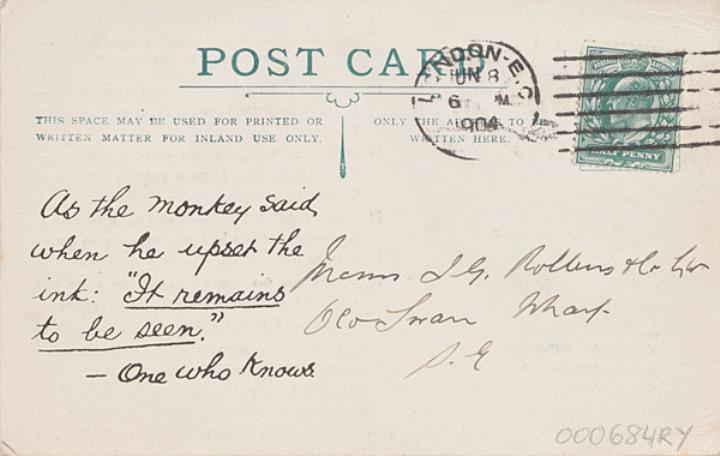 POST CARD
LONDON·E.C
JUN 8
6 PM
1904
THIS SPACE MAY BE USED FOR PRINTED OR
WRITTEN MATTER FOR INLAND USE ONLY.
ONLY THE ADDRESS TO BE
WRITTEN HERE.
HALF PENNY
As the monkey said,
when he upset the
ink: "It remains
to be seen."
— One who knows.
Messrs J. G. Rollins & Co Ltd
Old Swan Wharf
S. E
000684RY